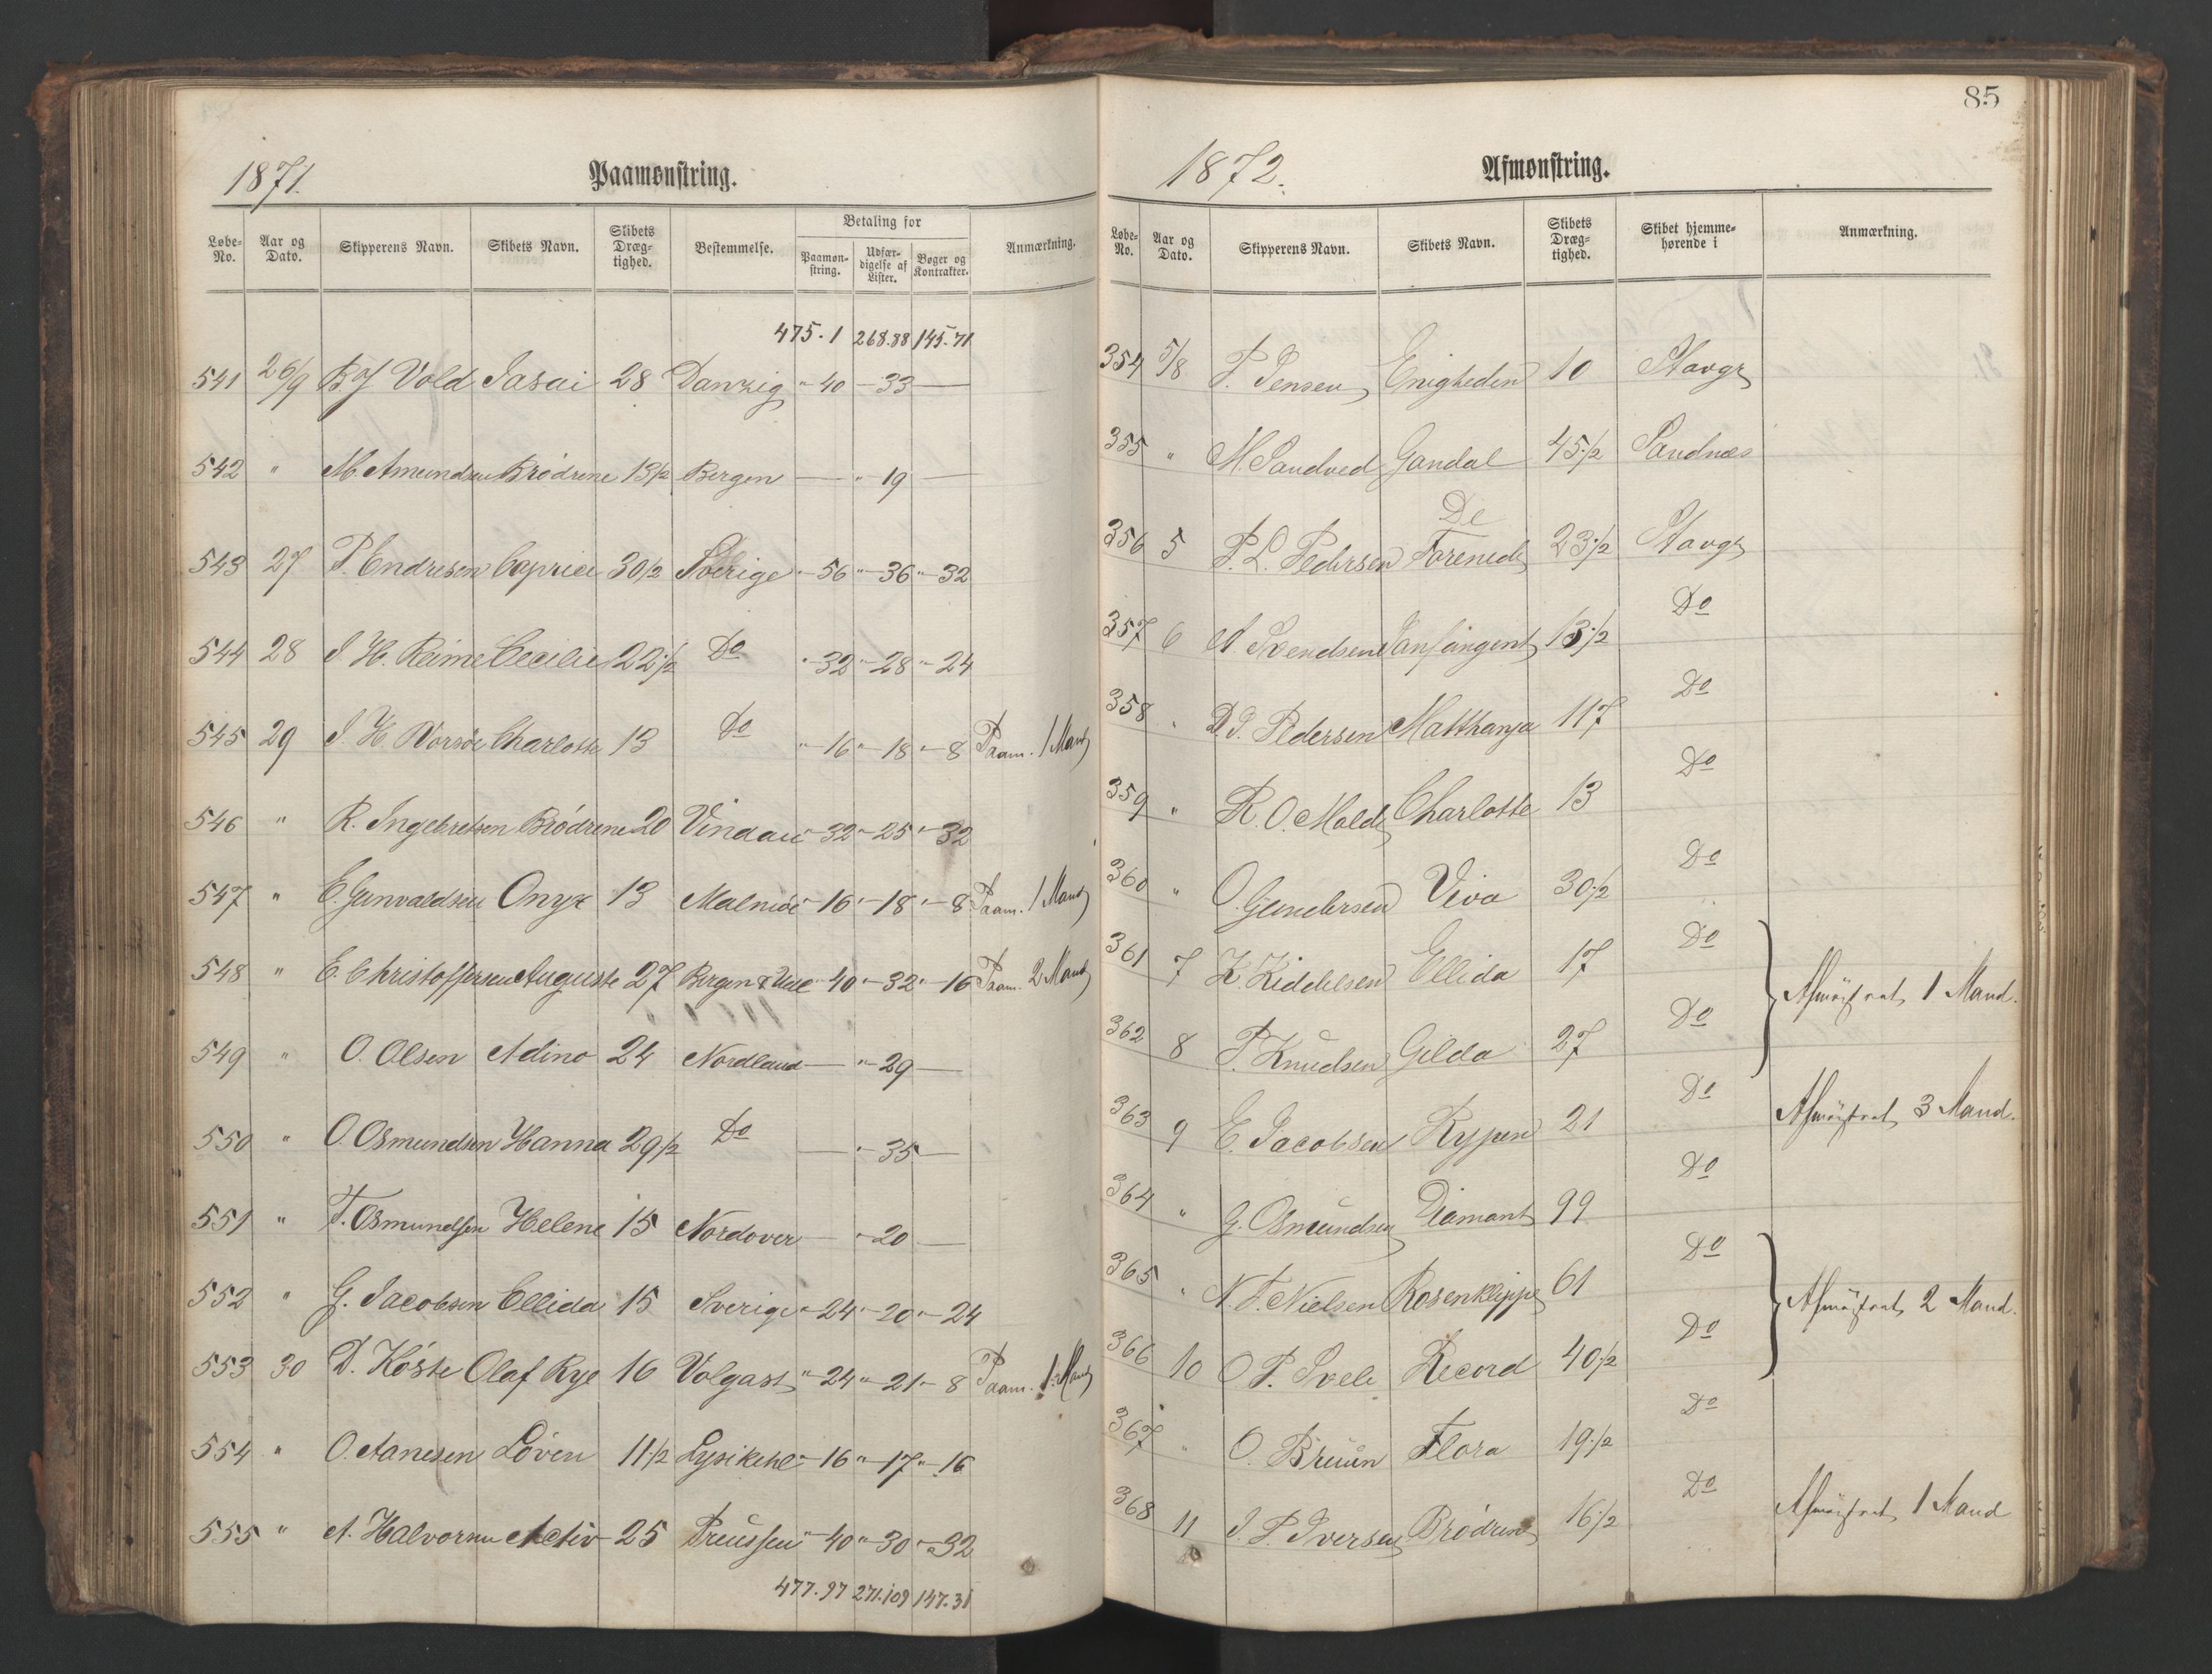 1871. Paamønstring.
Løbe-No. Aar og Dato. Skipperens Navn. Skibets Navn. Skibets Dræg-tighed. Bestemmelse. Betaling for Paamøn-string. Udfær-digelse af Lister. Bøger og Kontrakter. Anmærkning.
475.1 268.88 145.71
541 26/9 B J Vold Jasai 28 Danzig " 40 - 33 —
542 " M. Amundsen Brødrene 13½ Bergen — " 19 —
543 27 P. Endresen Caprice 30½ Sverige " 56 " 36 " 32
544 28 J. H. Reime Cecilie 22½ Do " 32 " 28 " 24
545 29 J. H. Vorsøe Charlotte 13 Do " 16 " 18 " 8 Paam. 1 Mand
546 " R. Ingebretsen Brødrene 20 Vindau " 32 " 25 " 32
547 " E. Gunvaldsen Onyx 13 Malmöe " 16 " 18 " 8 Paam. 1 Mand
548 " E. Christoffersen Auguste 27 Bergen & " 40 " 32 " 16 Paam. 2 Mand
549 " O. Olsen Adino 24 Nordland — " 29 —
550 " O. Osmundsen Hanna 29½ Do — " 35 —
551 " T. Osmundsen Helene 15 Nordover — " 20 —
552 " G. Jacobsen Ellida 15 Sverige " 24 " 20 " 24
553 30 D. Köste Olaf Rye 16 Volgast " 24 " 21 " 8 Paam. 1 Mand
554 " O. Aanesen Löven 11½ Lysikehl " 16 " 17 " 16
555 " A. Halvorsen Activ 25 Preussen " 40 " 30 " 32
477.97 271.109 147.31
85
1872. Afmønstring.
Løbe-No. Aar og Dato. Skipperens Navn. Skibets Navn. Skibets Dræg-tighed. Skibet hjemme-hørende i Anmærkning.
354 5/8 P. Jensen Enigheden 10 Stavgr
355 " M. Sandved Gandal 45½ Sandnæs
356 5 P. L. Pedersen De Forenede 23½ Stavgr
357 6 A. Svendsen 13½ Do
358 " D. J. Pedersen Matthanja 117 Do
359 " R. O. Molde Charlotte 13 Do
360 " O. Gundersen Viva 30½ Do
361 7 K. Kiddelsen Ellida 17 Do
Afmönstret 1 Mand.
362 8 P. Knudsen Gilda 27 Do
363 9 E. Jacobsen Rypen 21 Do Afmönstret 3 Mand.
364 " G. Osmundsen Diamant 99 Do
365 " N. F. Nielsen Rosenklippe 61 Do
Afmönstret 2 Mand.
366 10 O. P. Svele Record 40½ Do
367 " O. Bruun Flora 19½ Do
368 11 J. P. Iversen Brødrene 16½ Do Afmönstret 1 Mand